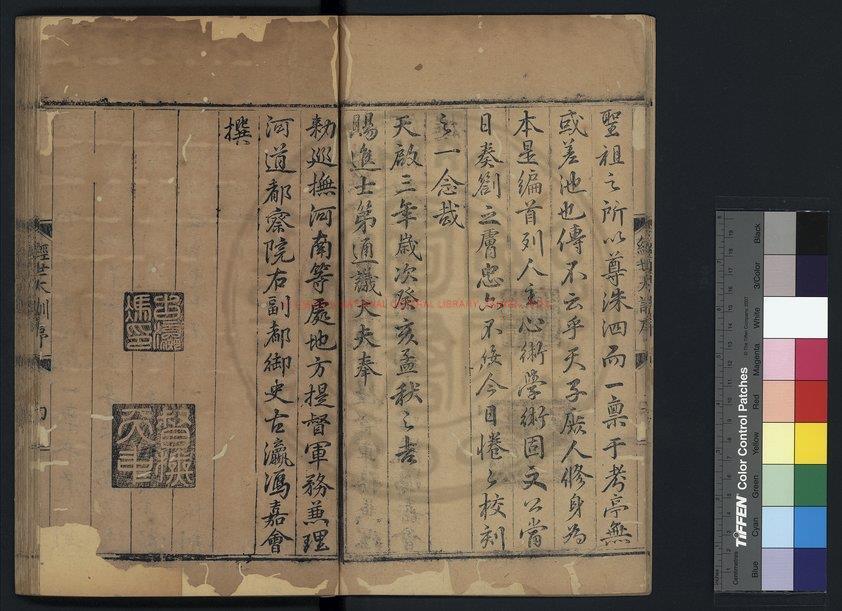 聖祖之所以尊洙泗而一稟于考亭無
或差池也傳不云乎天子庶人修身為
本是編首列人主心術學術固文公當
日奏劄之膚忠而不佞今日惓惓校刻
之一念哉
天啟三年歲次癸亥孟秋之吉
賜進士第通議大夫奉
勅巡撫河南等處地方提督軍務兼理
河道都察院右副都御史古瀛馮嘉會
撰
經世大訓序
Black
3/Color
White
Magenta
Red
Yellow
Green
Cyan
Blue
TIFFEN Color Control Patches
© The Tiffen Company, 2007
Centimetres
Inches